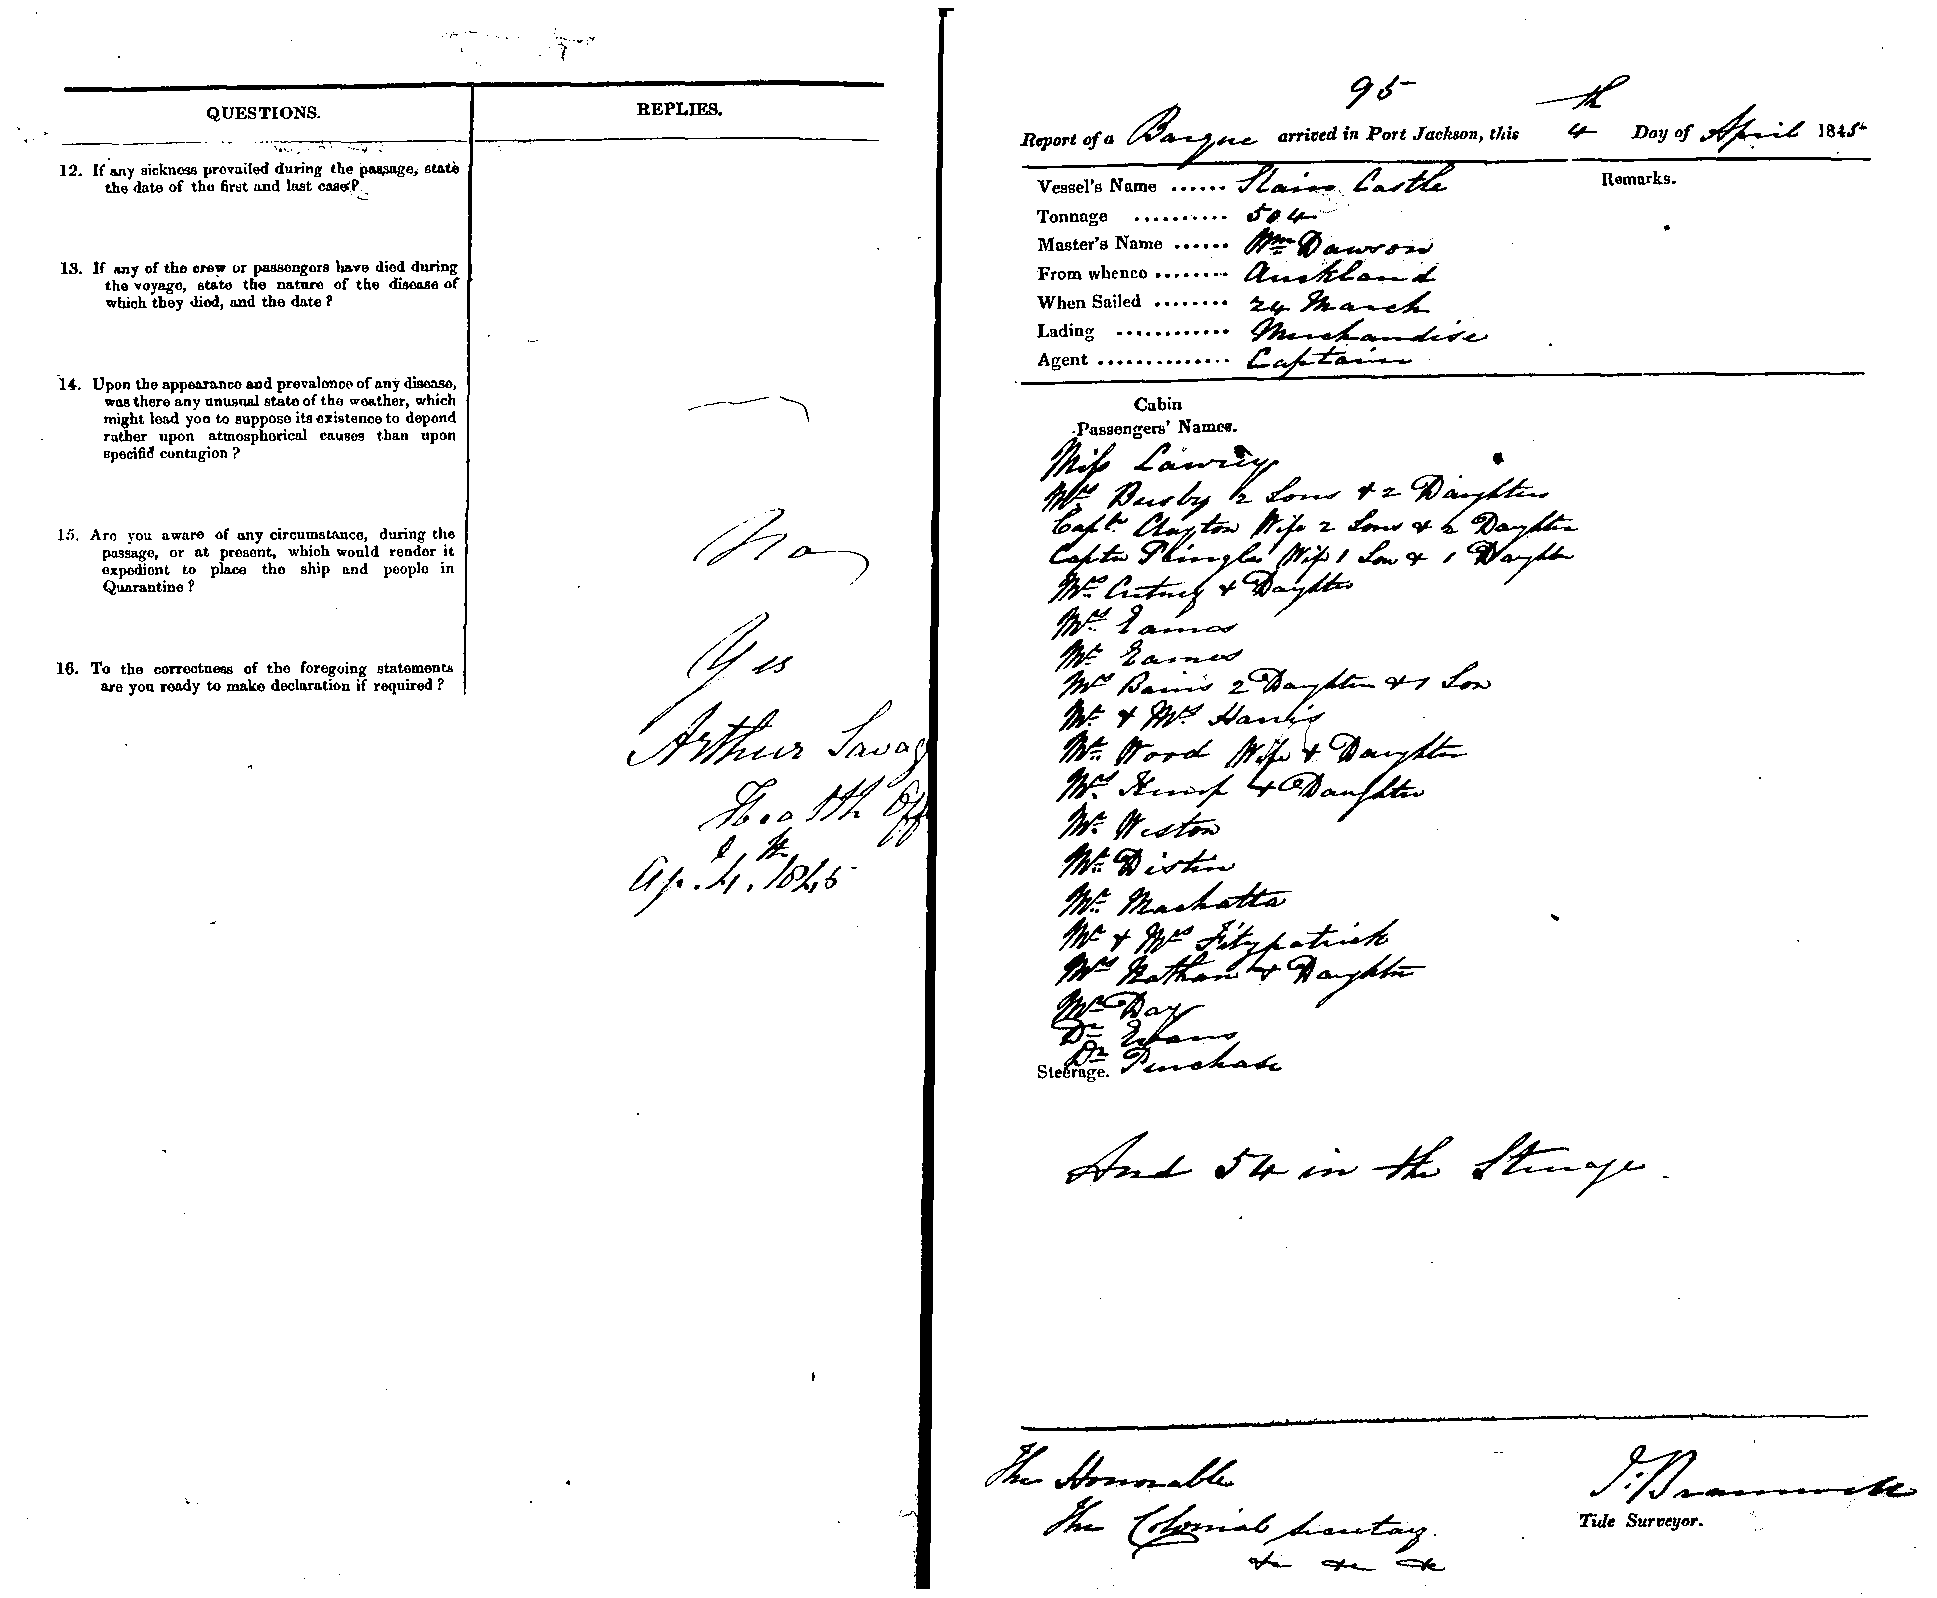 QUESTIONS.
REPLIES.
12. If any sickness prevailed during the passage, state
the date of the first and last case?
13. If any of the crew or passengers have died during
the voyage, state the nature of the disease of
which they died, and the date?
14. Upon the appearance and prevalence of any disease,
was there any unusual state of the weather, which
might lead you to suppose its existence to depend
rather upon atmospherical causes than upon
specific contagion?
15. Are you aware of any circumstance, during the
passage, or at present, which would render it
expedient to place the ship and people in
Quarantine?
No
16. To the correctness of the foregoing statements
are you ready to make declaration if required?
Yes
Arthur Savag
Health Off
Ap. 4. 1845
95
Report of a Barque arrived in Port Jackson, this 4th Day of April 1845
Vessel's Name ...... Slains Castle
Remarks.
Tonnage .......... 504
Master's Name ...... Wm Dawson
From whence ........ Auckland
When Sailed ........ 24 March
Lading ............ Merchandise
Agent .............. Captain
Cabin
Passengers' Names.
Miss Lawry
Mrs Busby 2 Sons & 2 Daughters
Captn Clayton Wife 2 Sons & 2 Daughters
Captn Pringle Wife 1 Son & 1 Daughter
Mrs & Daughter
Mrs Eames
Mr Eames
Mrs Bains 2 Daughters & 1 Son
Mr & Mrs Harris
Mr Wood Wife & Daughter
Mrs Kemp & Daughter
Mr Weston
Mr Distin
Mr Machatta
Mr & Mrs Fitzpatrick
Mrs Nathan & Daughter
Mr Day
Dr Evans
Dr Purchase
Steerage.
And 54 in the Steerage.
The Honorable
The Colonial Secretary
&c &c &c
J. Bramwell
Tide Surveyor.